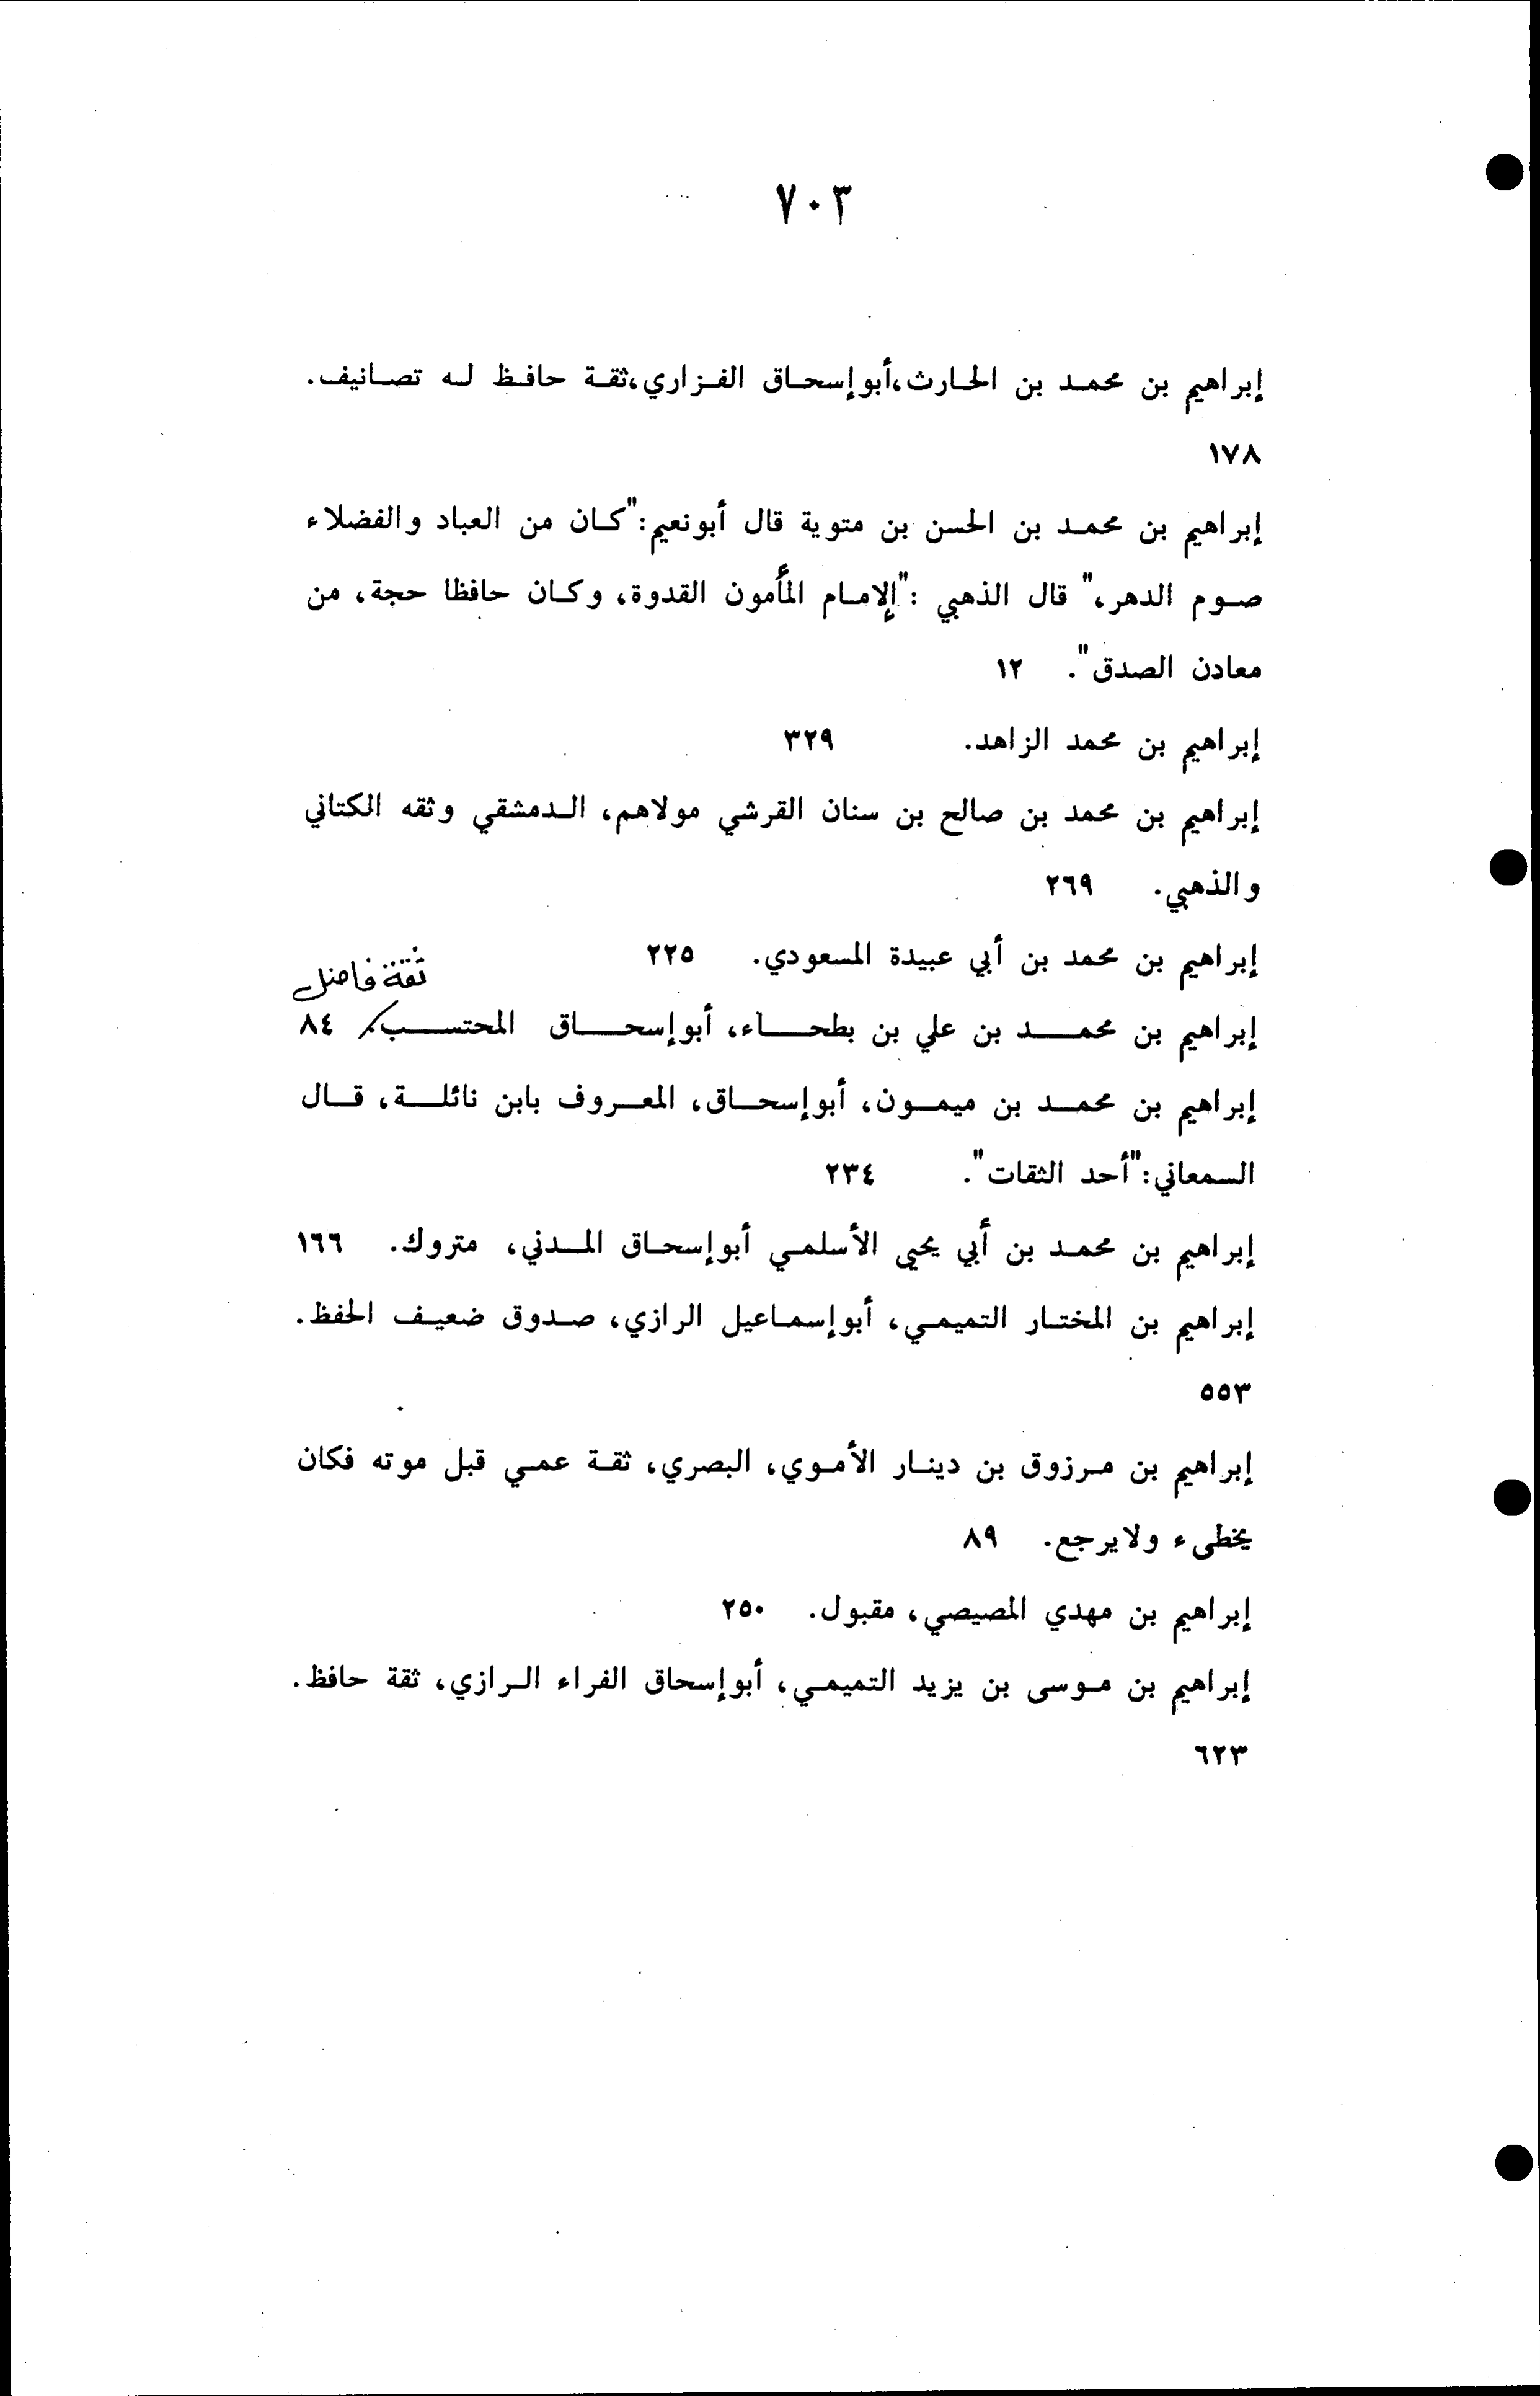 ٧٠٣
إبراهيم بن محمد بن الحارث،أبوإسحاق الفزاري،ثقة حافظ له تصانيف.
١٧٨
إبراهيم بن محمد بن الحسن بن متوية قال أبونعيم:"كان من العباد والفضلاء
صوم الدهر،" قال الذهبي :"الإمام المأمون القدوة، وكان حافظا حجة، من
معادن الصدق". ١٢
إبراهيم بن محمد الزاهد. ٣٢٩
إبراهيم بن محمد بن صالح بن سنان القرشي مولاهم، الدمشقي وثقه الكتاني
والذهبي. ٢٦٩
إبراهيم بن محمد بن أبي عبيدة المسعودي. ٢٢٥
ثقة فاضل
إبراهيم بن محمد بن علي بن بطحاء، أبوإسحاق المحتسب. ٨٤
إبراهيم بن محمد بن ميمون، أبوإسحاق، المعروف بابن نائلة، قال
السمعاني:"أحد الثقات". ٢٣٤
إبراهيم بن محمد بن أبي يحيى الأسلمي أبوإسحاق المدني، متروك. ١٦٦
إبراهيم بن المختار التميمي، أبوإسماعيل الرازي، صدوق ضعيف الحفظ.
٥٥٣
إبراهيم بن مرزوق بن دينار الأموي، البصري، ثقة عمي قبل موته فكان
يخطىء ولايرجع. ٨٩
إبراهيم بن مهدي المصيصي، مقبول. ٢٥٠
إبراهيم بن موسى بن يزيد التميمي، أبوإسحاق الفراء الرازي، ثقة حافظ.
٦٢٣